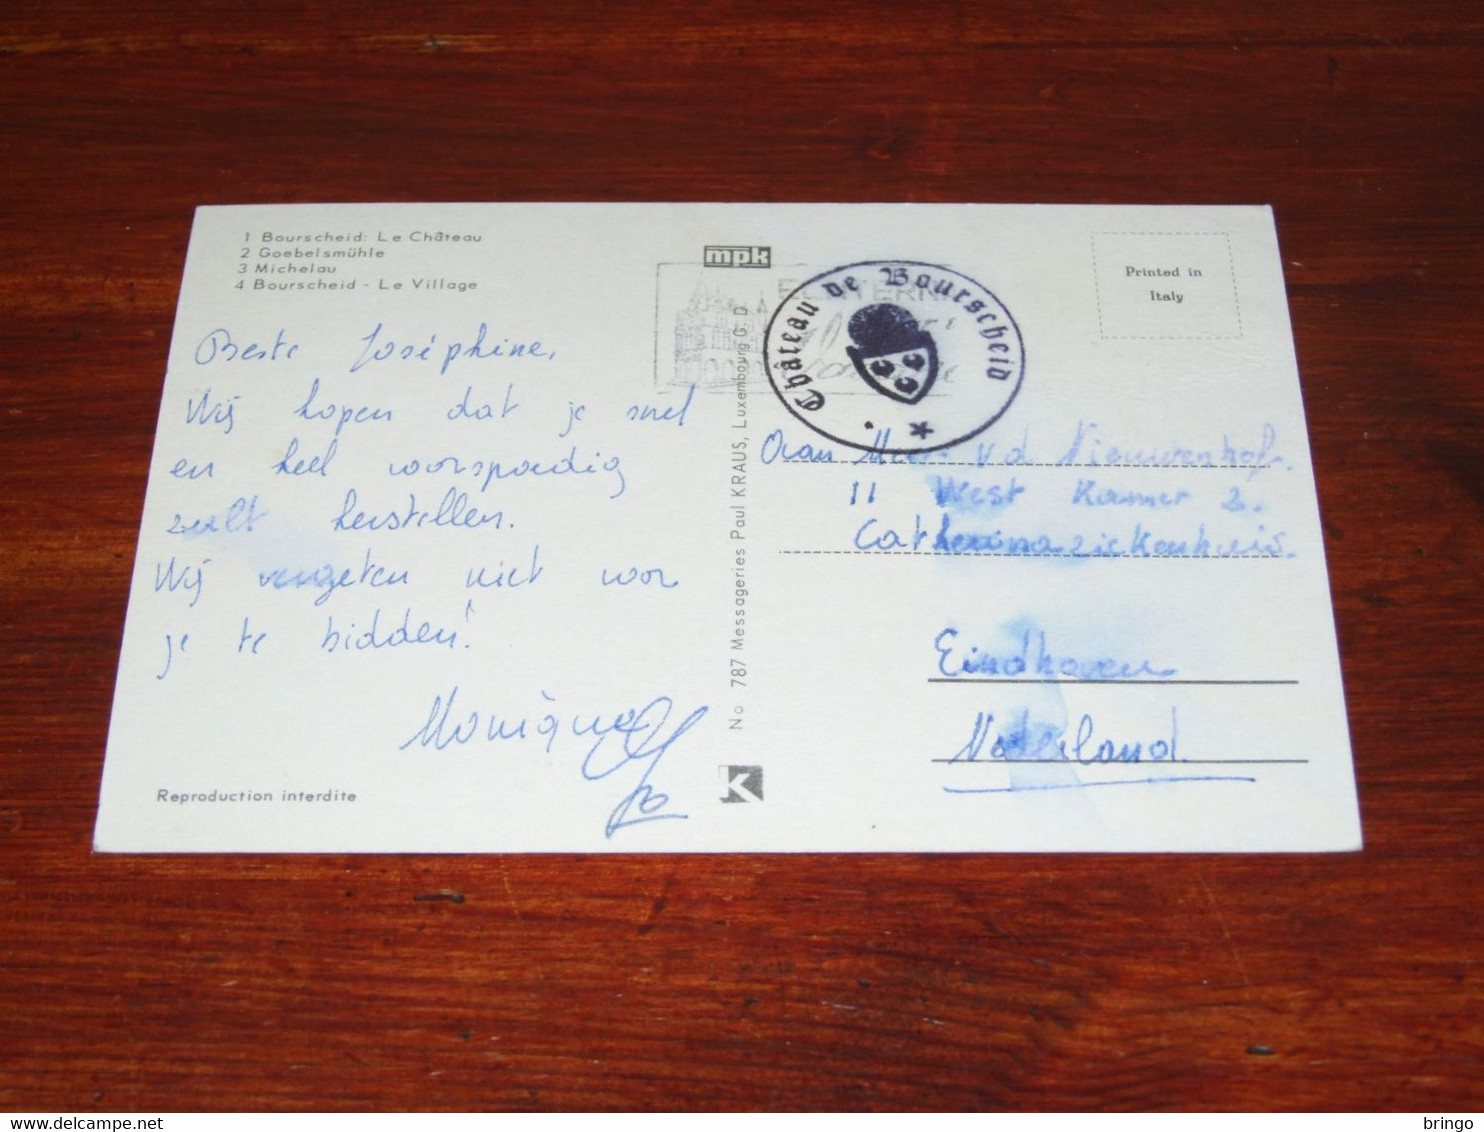 1 Bourscheid: Le Château
2 Goebelsmühle
3 Michelau
4 Bourscheid - Le Village
Beste Joséphine,
Wij hopen dat je snel
en heel voorspoedig
zult herstellen.
Wij vergeten niet voor
je te bidden!
Monique
Reproduction interdite
mpk
No 787 Messageries Paul KRAUS, Luxembourg G. D.
K
Château de Bourscheid
Printed in
Italy
Aan Mej. v d Nieuwenhof.
11 West Kamer 2.
Catherinaziekenhuis.
Eindhoven
Nederland.
delcampe.net
bringo